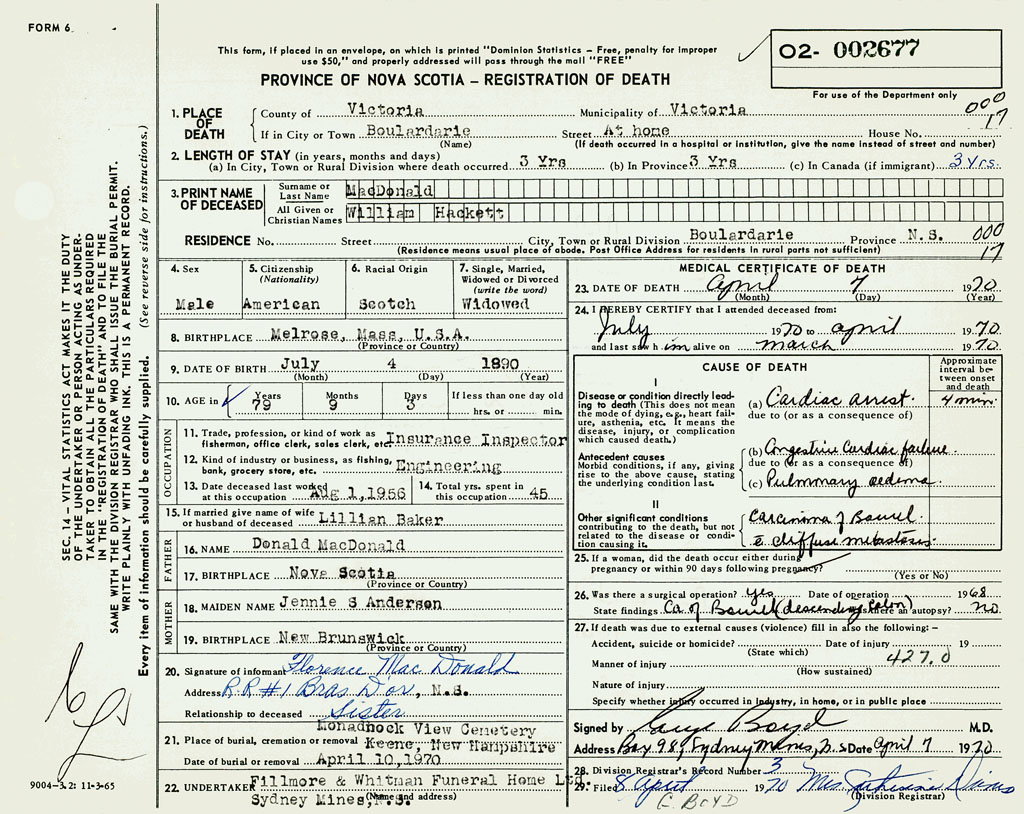 FORM 6
This form, if placed in an envelope, on which is printed "Dominion Statistics – Free, penalty for improper
use $50," and properly addressed will pass through the mail "FREE"
02- 002677
PROVINCE OF NOVA SCOTIA – REGISTRATION OF DEATH
For use of the Department only
000
17
1. PLACE OF DEATH
County of Victoria Municipality of Victoria
If in City or Town Boulardarie Street At home House No.
(Name) (If death occurred in a hospital or institution, give the name instead of street and number)
2. LENGTH OF STAY (in years, months and days)
(a) In City, Town or Rural Division where death occurred 3 Yrs (b) In Province 3 Yrs (c) In Canada (if immigrant) 3 Yrs.
3. PRINT NAME OF DECEASED
Surname or Last Name MacDonald
All Given or Christian Names William Hackett
RESIDENCE No. Street City, Town or Rural Division Boulardarie Province N.S. 000
(Residence means usual place of abode. Post Office Address for residents in rural parts not sufficient) 17
4. Sex
Male
5. Citizenship
(Nationality)
American
6. Racial Origin
Scotch
7. Single, Married,
Widowed or Divorced
(write the word)
Widowed
8. BIRTHPLACE Melrose, Mass, U.S.A.
(Province or Country)
9. DATE OF BIRTH July 4 1890
(Month) (Day) (Year)
10. AGE in Years Months Days If less than one day old
79 9 3 hrs. or min.
OCCUPATION
11. Trade, profession, or kind of work as
fisherman, office clerk, sales clerk, etc. Insurance Inspector
12. Kind of industry or business, as fishing,
bank, grocery store, etc. Engineering
13. Date deceased last worked
at this occupation Aug 1,1956
14. Total yrs. spent in
this occupation 45
15. If married give name of wife
or husband of deceased Lillian Baker
FATHER
16. NAME Donald MacDonald
17. BIRTHPLACE Nova Scotia
(Province or Country)
MOTHER
18. MAIDEN NAME Jennie S Anderson
19. BIRTHPLACE New Brunswick
(Province or Country)
20. Signature of informant Florence MacDonald
Address R.R #1 Bras D'or, N.S.
Relationship to deceased Sister
Monadnock View Cemetery
21. Place of burial, cremation or removal Keene, New Hampshire
Date of burial or removal April 10,1970
Fillmore & Whitman Funeral Home Ltd.
22. UNDERTAKER Sydney Mines, N.S.
(Name and address)
MEDICAL CERTIFICATE OF DEATH
23. DATE OF DEATH April 7 1970
(Month) (Day) (Year)
24. I HEREBY CERTIFY that I attended deceased from:
July 1970 to april 1970
and last saw him alive on march 1970
CAUSE OF DEATH
Approximate
interval be-
tween onset
and death
I
Disease or condition directly lead-
ing to death (This does not mean
the mode of dying, e.g., heart fail-
ure, asthenia, etc. It means the
disease, injury, or complication
which caused death.)
(a) Cardiac arrest. 4 min.
due to (or as a consequence of)
Antecedent causes
Morbid conditions, if any, giving
rise to the above cause, stating
the underlying condition last.
(b) Congestive Cardiac failure
due to (or as a consequence of)
(c) Pulmonary oedema
II
Other significant conditions
contributing to the death, but not
related to the disease or condi-
tion causing it.
Carcinoma of Bowel
c̄ diffuse metastasis
25. If a woman, did the death occur either during
pregnancy or within 90 days following pregnancy?
(Yes or No)
26. Was there a surgical operation? yes Date of operation 1968
State findings Ca of Bowel (descending Colon) Is there an autopsy? no
27. If death was due to external causes (violence) fill in also the following: –
Accident, suicide or homicide? Date of injury 19
(State which) 427.0
Manner of injury
(How sustained)
Nature of injury
Specify whether injury occurred in industry, in home, or in public place
Signed by Boyd M.D.
Address Box 989, Sydney Mines, N.S. Date April 7 1970
28. Division Registrar's Record Number 3
29. Filed 8 April 1970 Mrs. Catherine
(Division Registrar)
E. BOYD
SEC. 14 – VITAL STATISTICS ACT MAKES IT THE DUTY
OF THE UNDERTAKER OR PERSON ACTING AS UNDER-
TAKER TO OBTAIN ALL THE PARTICULARS REQUIRED
IN THE "REGISTRATION OF DEATH" AND TO FILE THE
SAME WITH THE DIVISION REGISTRAR WHO SHALL ISSUE THE BURIAL PERMIT.
WRITE PLAINLY WITH UNFADING INK. THIS IS A PERMANENT RECORD.
Every item of information should be carefully supplied. (See reverse side for instructions.)
9004-3.2: 11-3-65